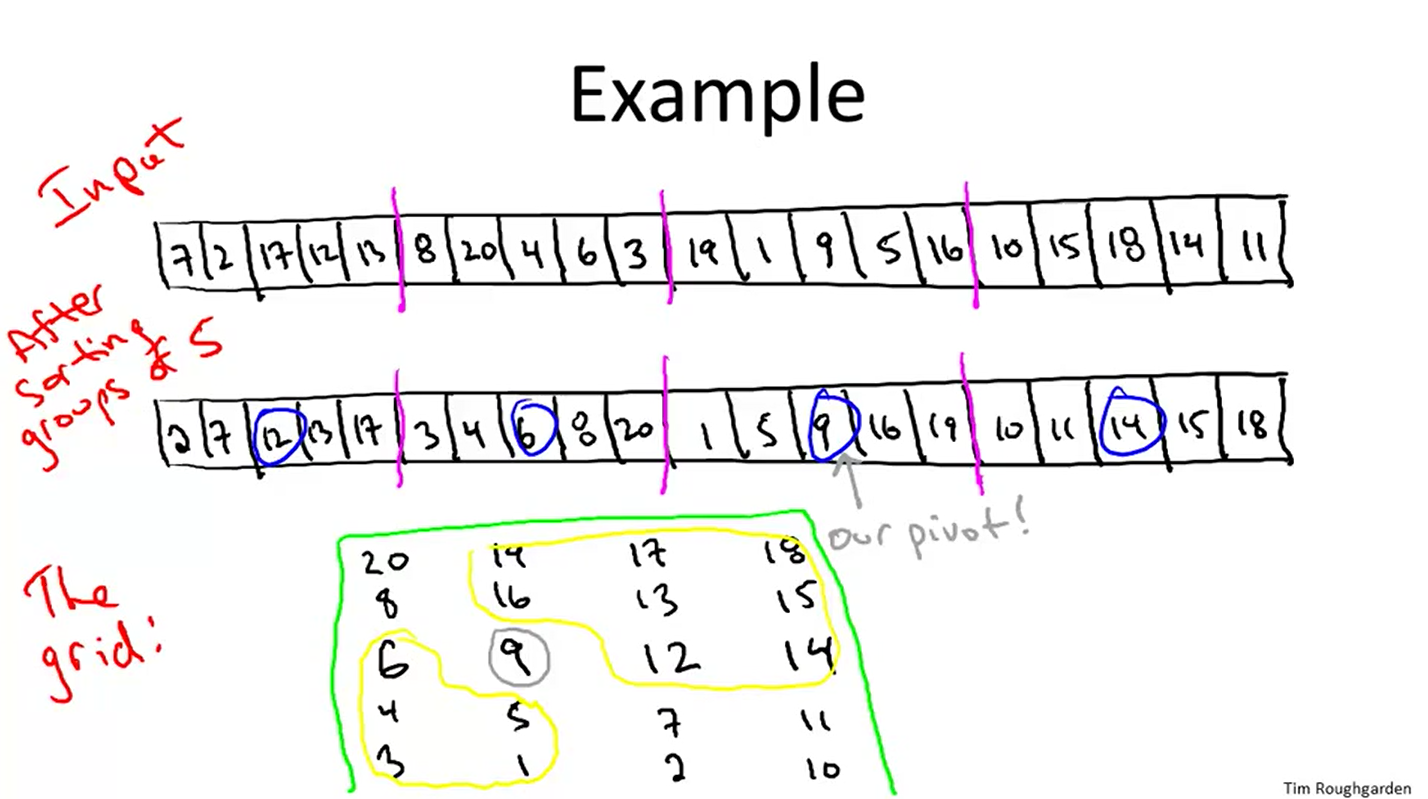 Example
Input
7 2 17 12 13 8 20 4 6 3 19 1 9 5 16 10 15 18 14 11
After
sorting
groups of 5
2 7 12 13 17 3 4 6 8 20 1 5 9 16 19 10 11 14 15 18
our pivot!
The
grid:
20 19 17 18
8 16 13 15
6 9 12 14
4 5 7 11
3 1 2 10
Tim Roughgarden